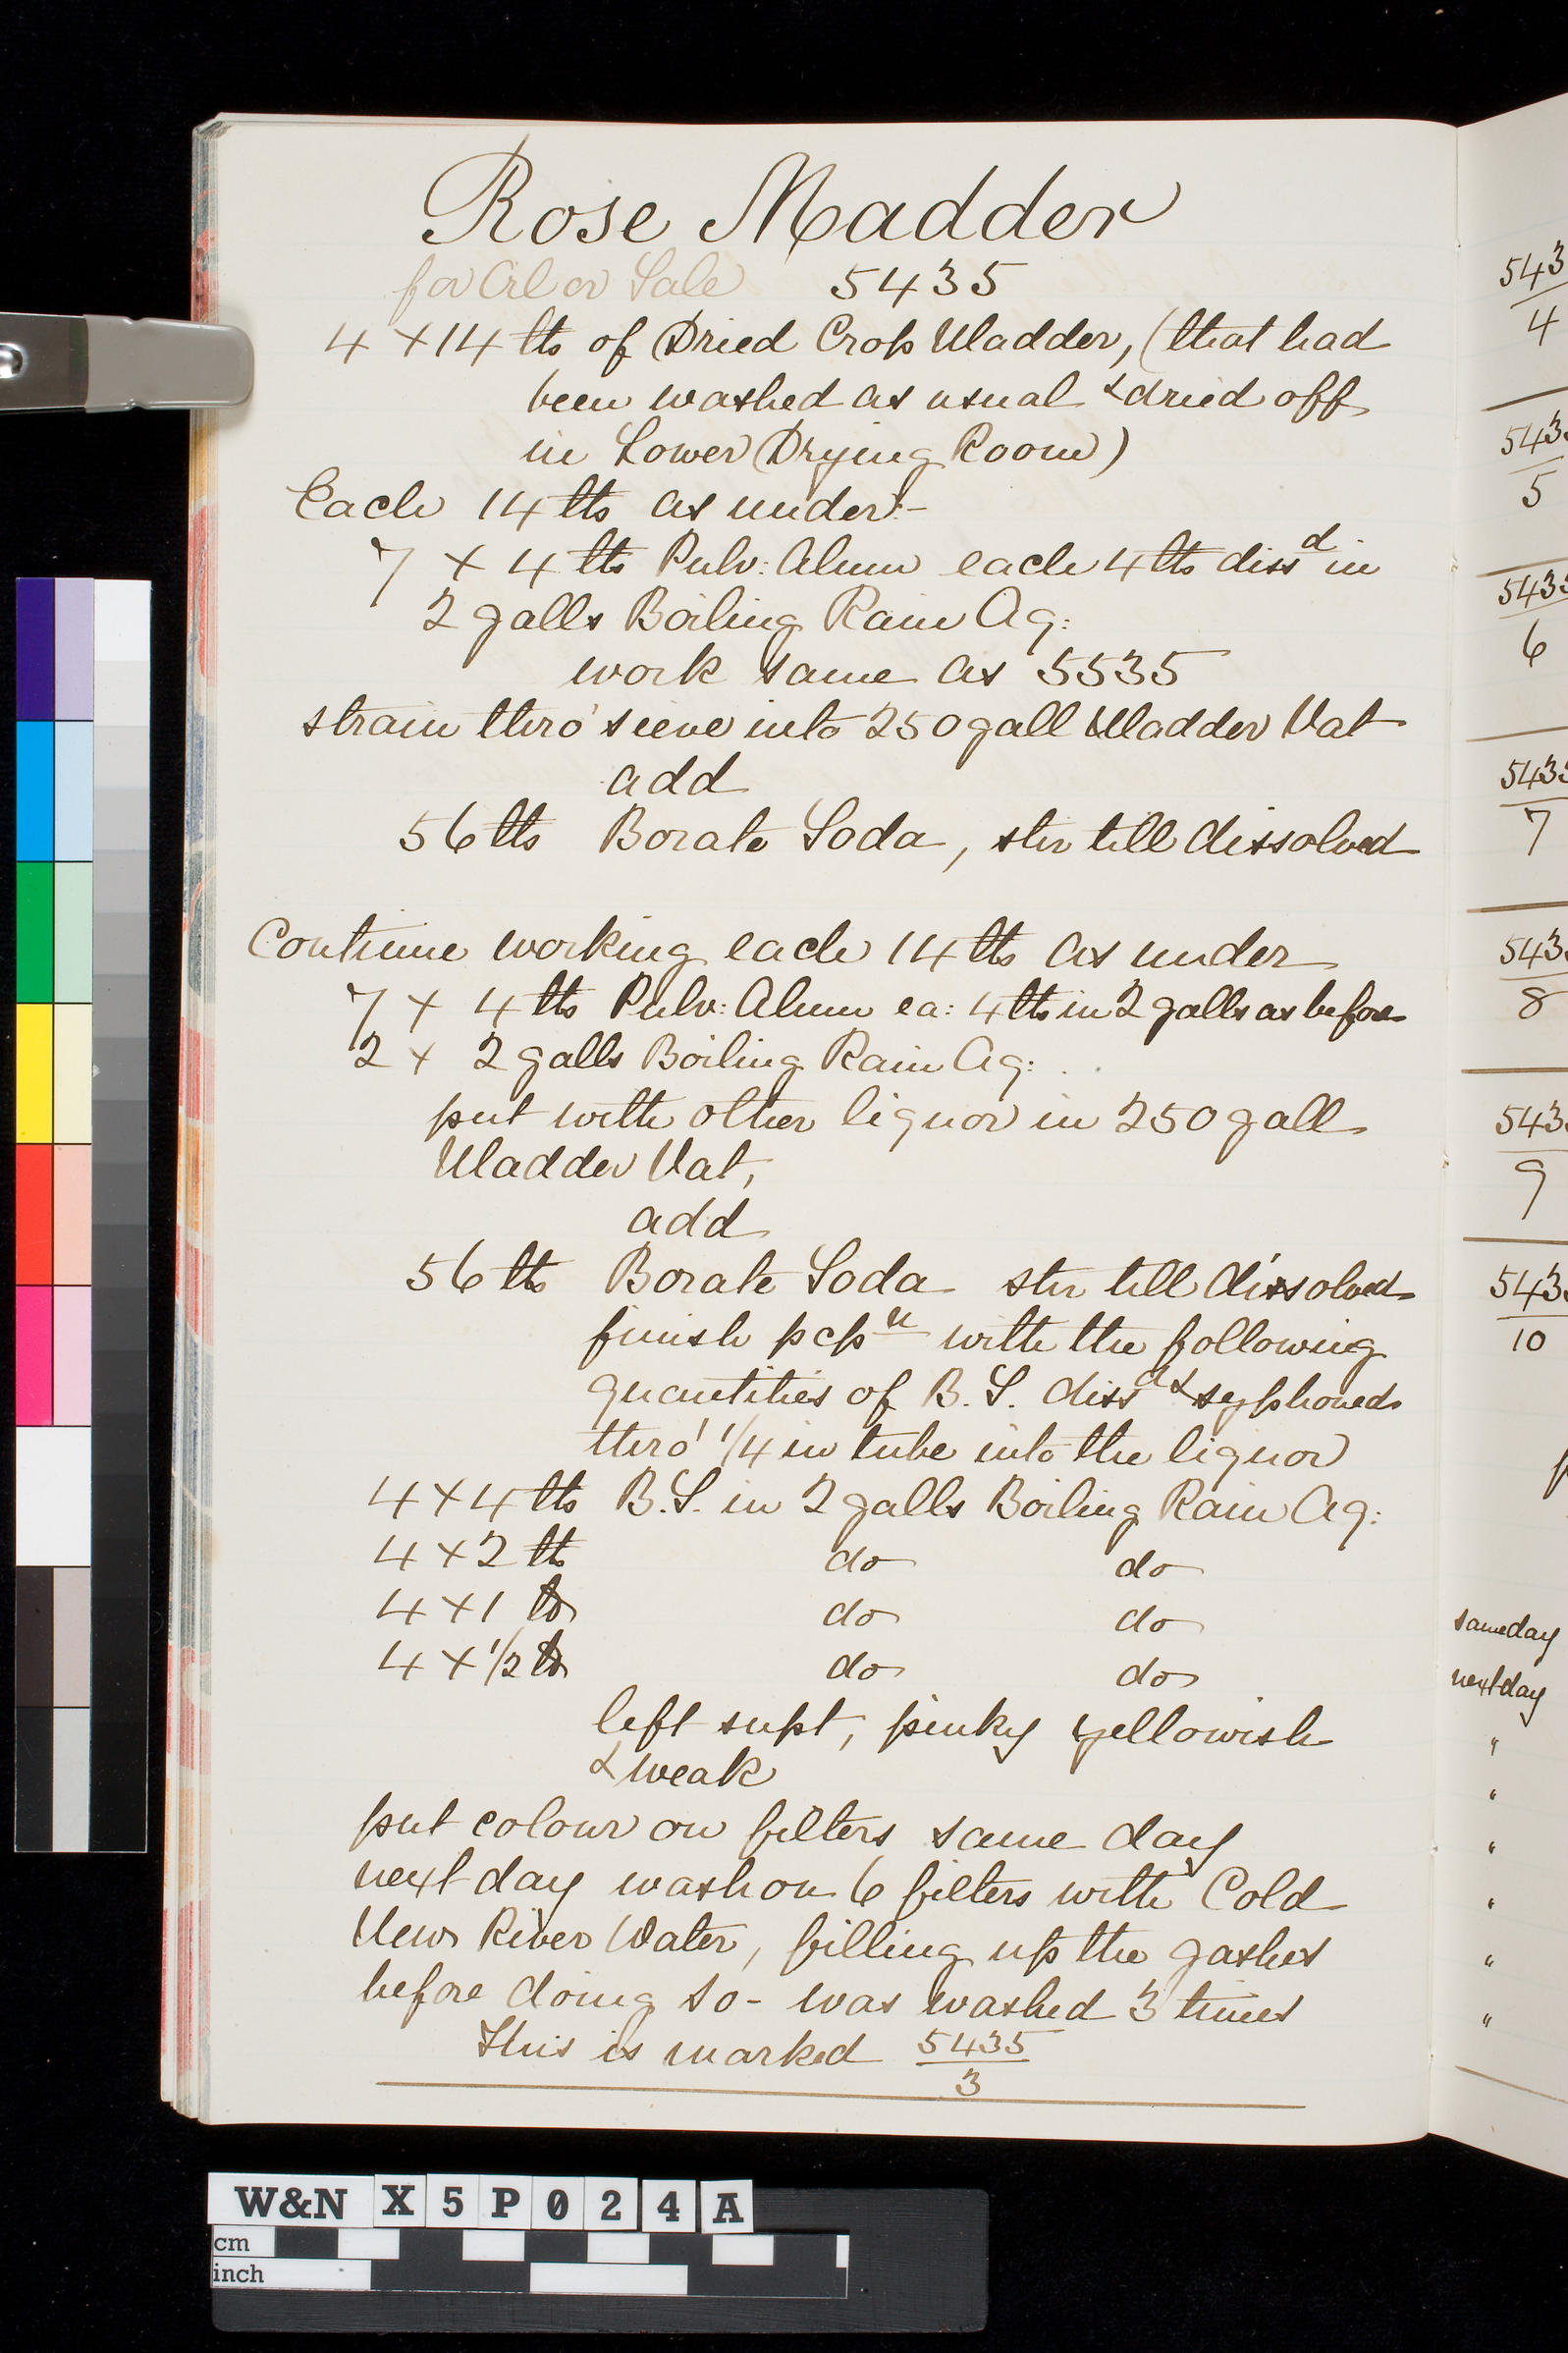 Rose Madder
for Oil or Sale 5435
4 × 14 lbs of Dried Crop Madder, (that had
been washed as usual & dried off
in Lower Drying Room)
Each 14 lbs as under:-
7 × 4 lbs Pulv: Alum each 4 lbs dissd in
2 galls Boiling Rain Aq:
work same as 5535
strain thro' sieve into 250 gall Madder Vat
add
56 lbs Borate Soda, stir till dissolved
Continue working each 14 lbs as under
7 × 4 lbs Pulv: Alum ea: 4 lbs in 2 galls as before
2 × 2 galls Boiling Rain Aq:
put with other liquor in 250 gall
Madder Vat,
add
56 lbs Borate Soda stir till dissolved
finish pcpn with the following
quantities of B.S. dissd & syphoned
thro' 1/4 in tube into the liquor
4 × 4 lbs B.S. in 2 galls Boiling Rain Aq:
4 × 2 lb do do
4 × 1 lb do do
4 × 1/2 lb do do
left supt, pinky yellowish
& weak
put colour on filters same day
next day wash on 6 filters with Cold
New River Water, filling up the gashes
before doing so - was washed 3 times
This is marked 5435
3
543
4
543
5
5435
6
5435
7
543
8
543
9
543
10
same day
next day
"
"
"
"
"
"
W&N X5P024A
cm
inch